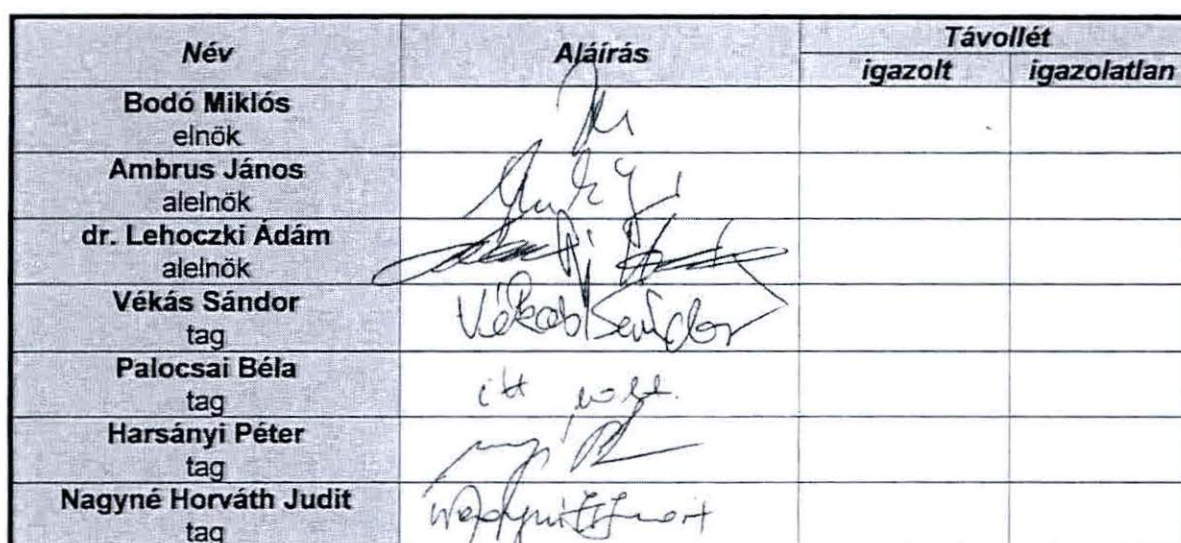 Név Aláírás Távollét
igazolt igazolatlan
Bodó Miklós
elnök
Ambrus János
alelnök
dr. Lehoczki Ádám
alelnök
Vékás Sándor Vékás Sándor
tag
Palocsai Béla itt volt.
tag
Harsányi Péter
tag
Nagyné Horváth Judit
tag